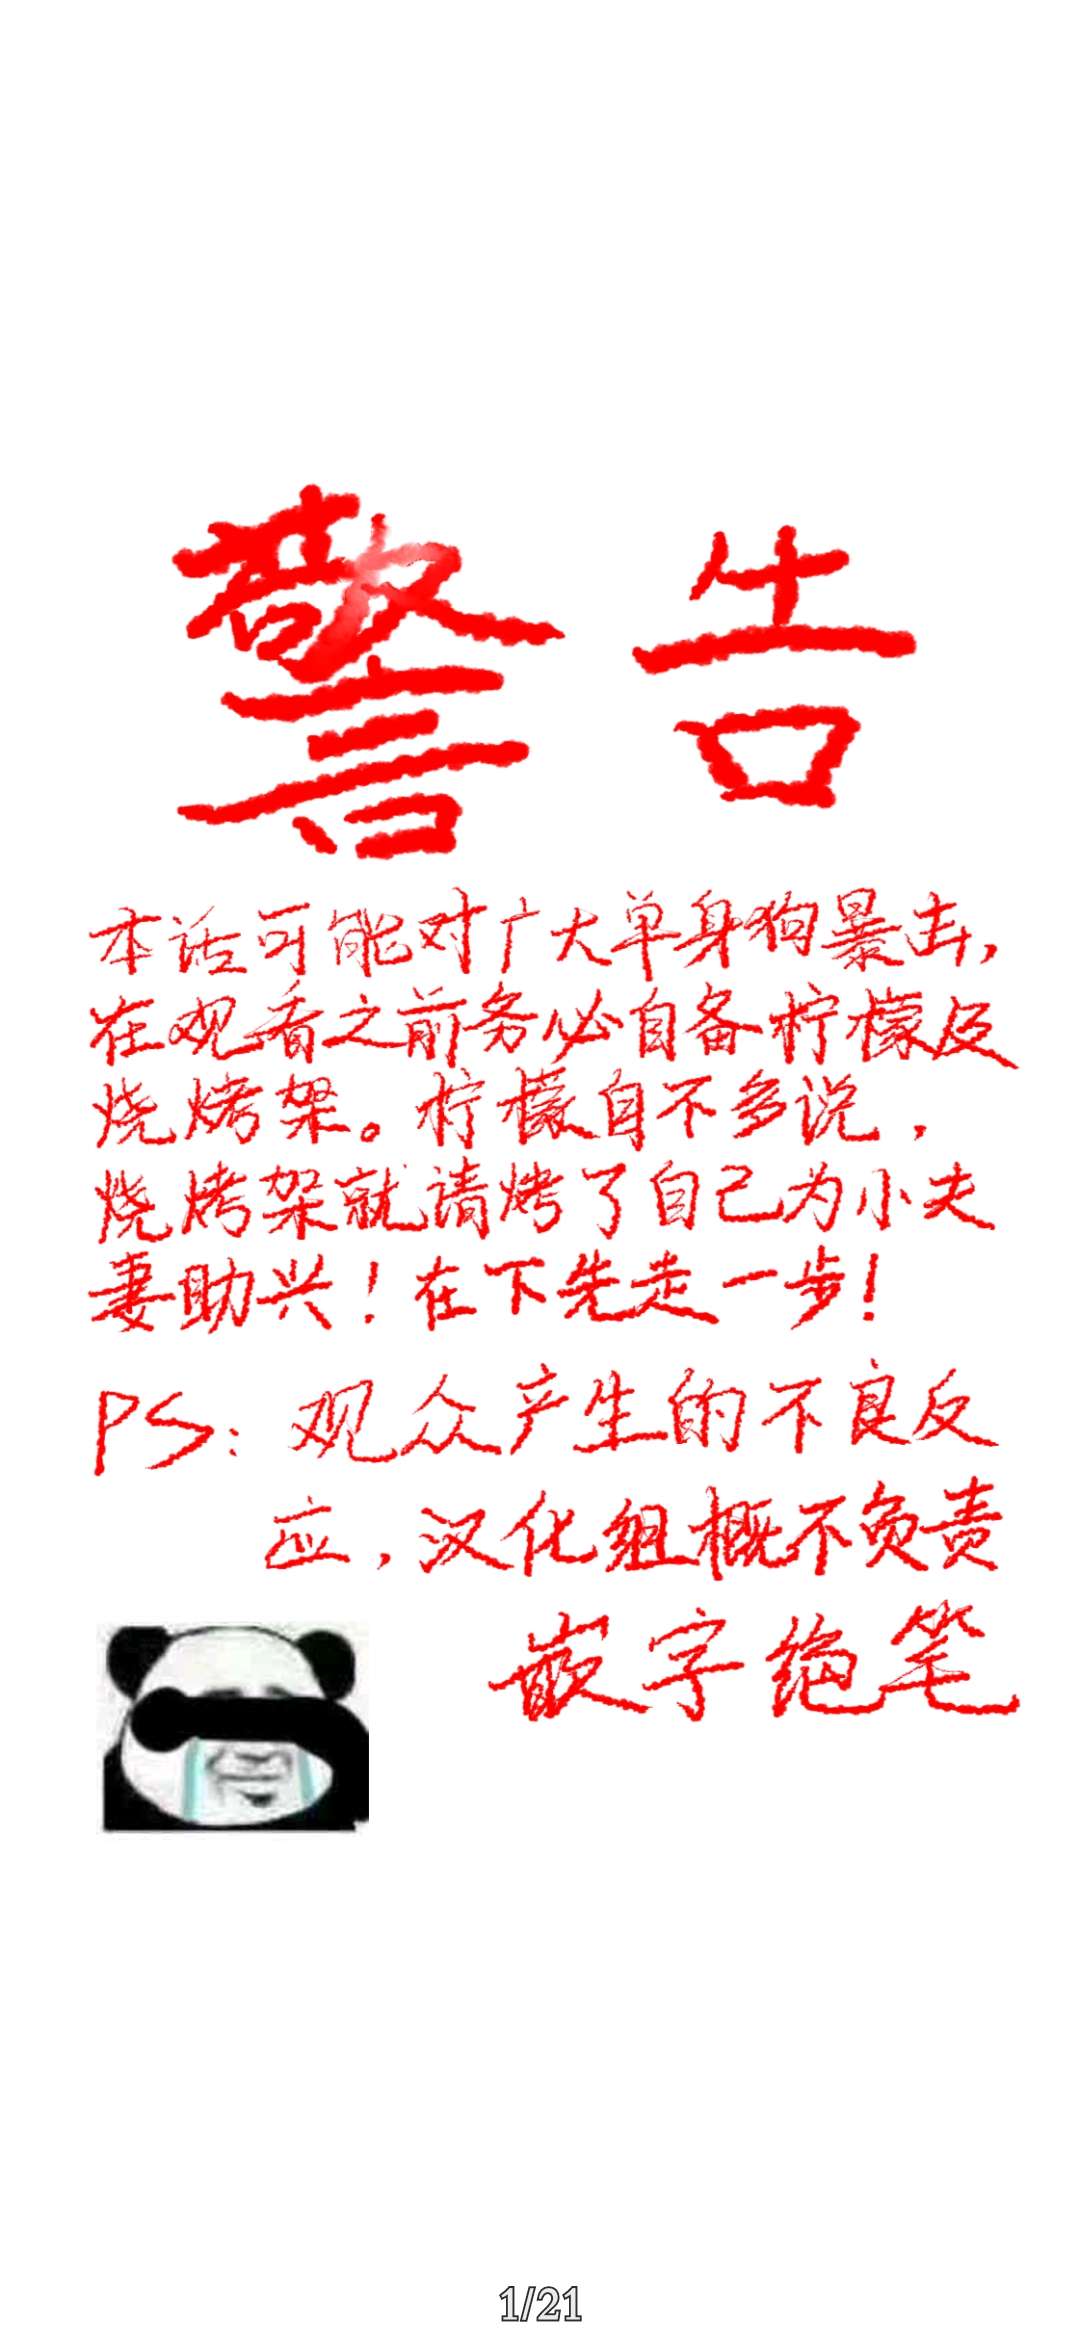 警告
本话可能对广大单身狗暴击，
在观看之前务必自备柠檬及
烧烤架。柠檬自不多说，
烧烤架就请烤了自己为小夫
妻助兴！在下先走一步！
PS：观众产生的不良反
应，汉化组概不负责
嵌字绝笔
1/21